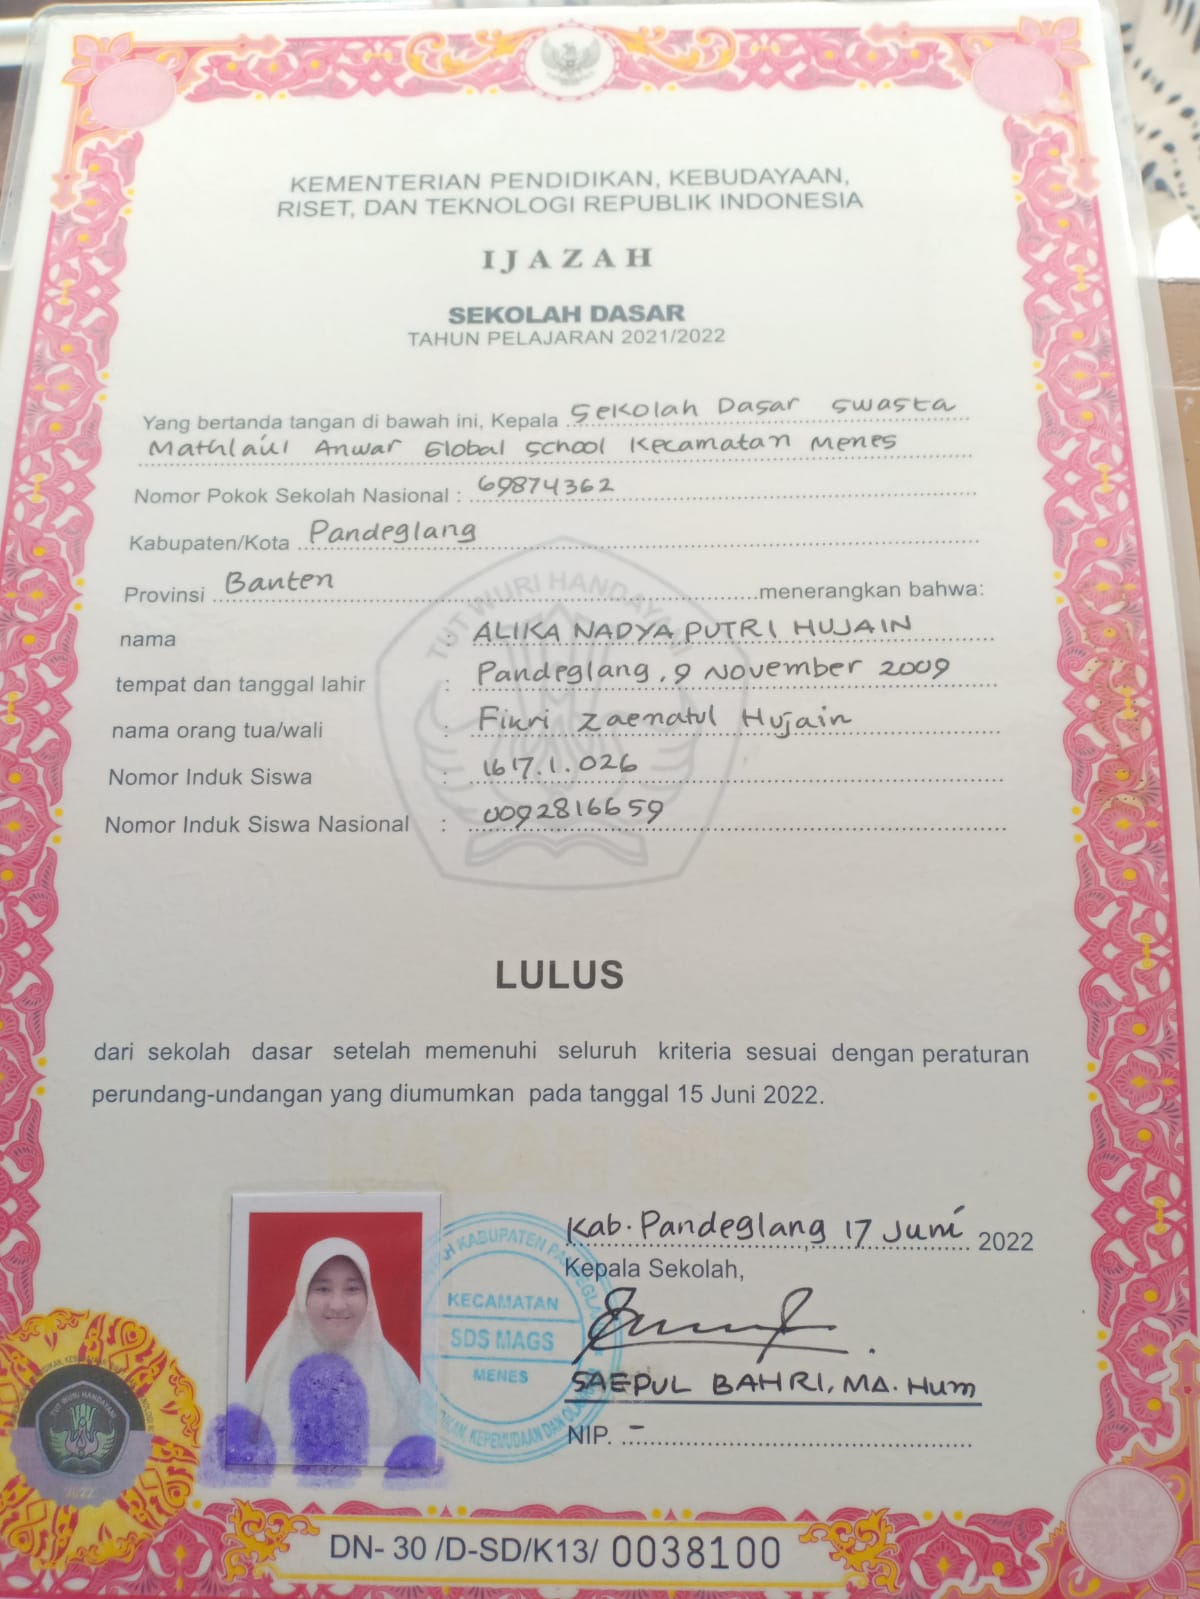 KEMENTERIAN PENDIDIKAN, KEBUDAYAAN,
RISET, DAN TEKNOLOGI REPUBLIK INDONESIA
IJAZAH
SEKOLAH DASAR
TAHUN PELAJARAN 2021/2022
Yang bertanda tangan di bawah ini, Kepala Sekolah Dasar Swasta
Mathla'ul Anwar Global School Kecamatan Menes
Nomor Pokok Sekolah Nasional : 69874362
Kabupaten/Kota Pandeglang
Provinsi Banten menerangkan bahwa:
nama : ALIKA NADYA PUTRI HUJAIN
tempat dan tanggal lahir : Pandeglang, 9 November 2009
nama orang tua/wali : Fikri Zaenatul Hujain
Nomor Induk Siswa : 1617.1.026
Nomor Induk Siswa Nasional : 0092816659
TUT WURI HANDAYANI
LULUS
dari sekolah dasar setelah memenuhi seluruh kriteria sesuai dengan peraturan
perundang-undangan yang diumumkan pada tanggal 15 Juni 2022.
Kab. Pandeglang 17 Juni 2022
Kepala Sekolah,
KABUPATEN
KECAMATAN
SDS MAGS
MENES
KEPEMUDAAN DAN
SAEPUL BAHRI, MA. Hum
NIP. -
TUT WURI HANDAYANI
2022
DN- 30 /D-SD/K13/ 0038100